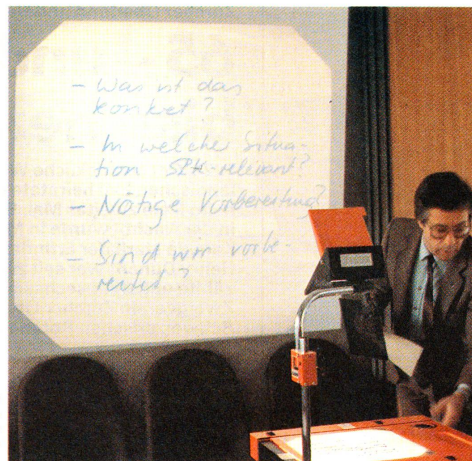 - Was ist das
konkret?
- In welcher Situa-
tion SRK-relevant?
- Nötige Vorbereitung?
- Sind wir vorbe-
reitet?